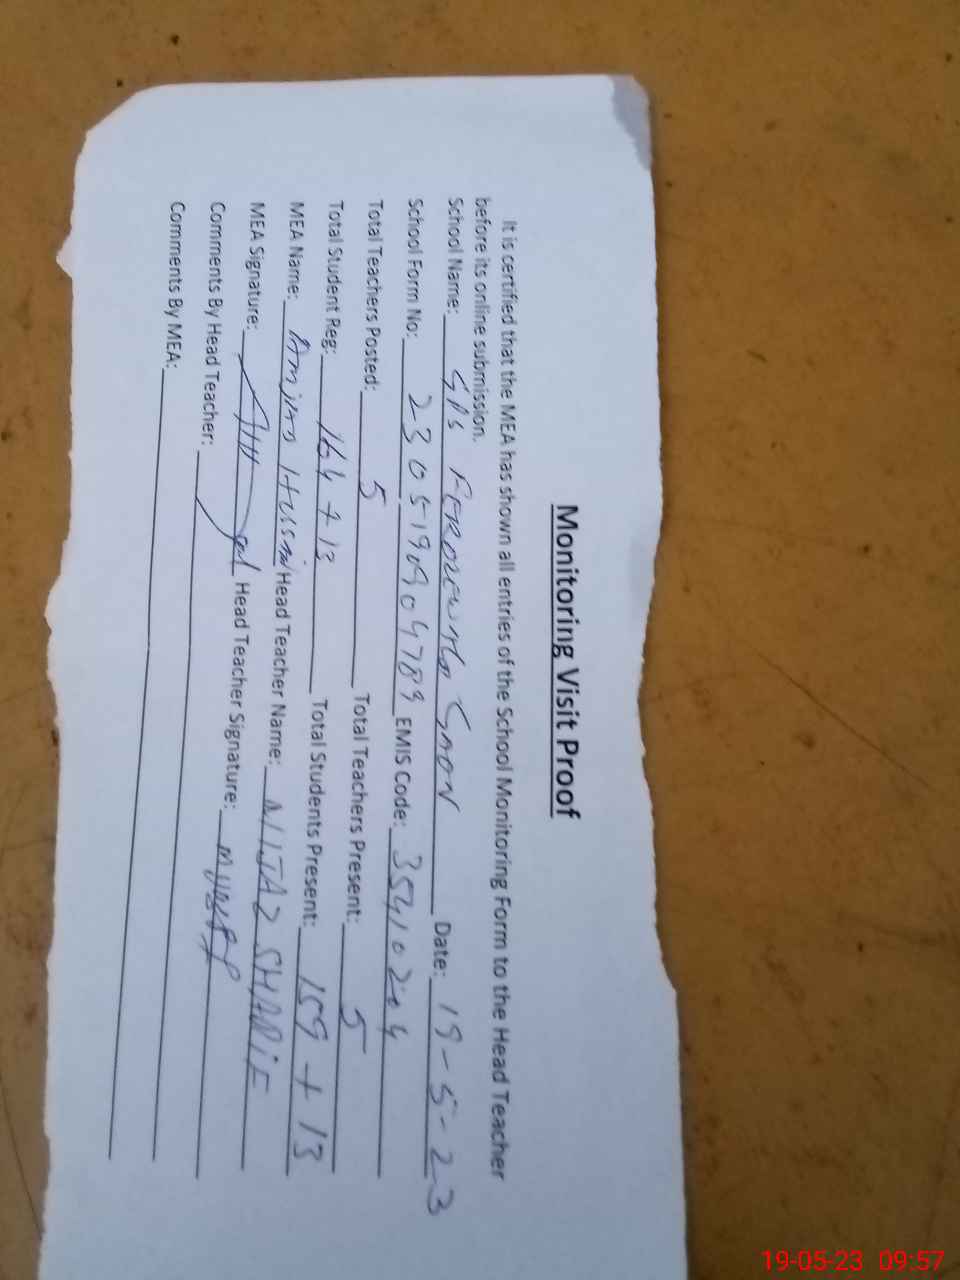 Monitoring Visit Proof
It is certified that the MEA has shown all entries of the School Monitoring Form to the Head Teacher
before its online submission.
School Name: GPS Goon Date: 19-5-23
School Form No: 2305190904789 EMIS Code: 35410204
Total Teachers Posted: 5 Total Teachers Present: 5
Total Student Reg: 164 + 13 Total Students Present: 159 + 13
MEA Name: Amjad Hussain Head Teacher Name: SHARIF
MEA Signature: Head Teacher Signature:
Comments By Head Teacher:
Comments By MEA:
19-05-23 09:57